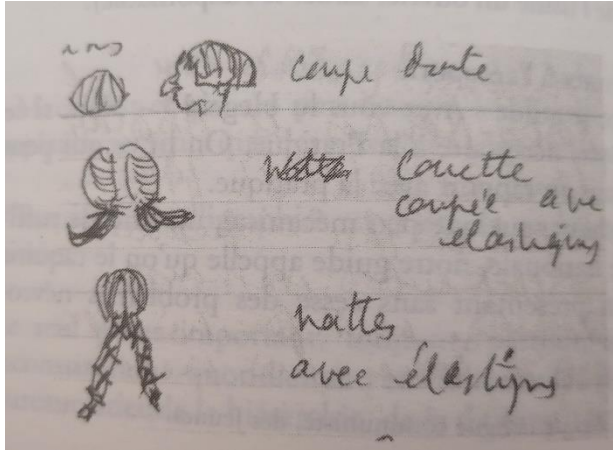 coupe droite
couette
coupée avec
élastiques
nattes
avec élastiques